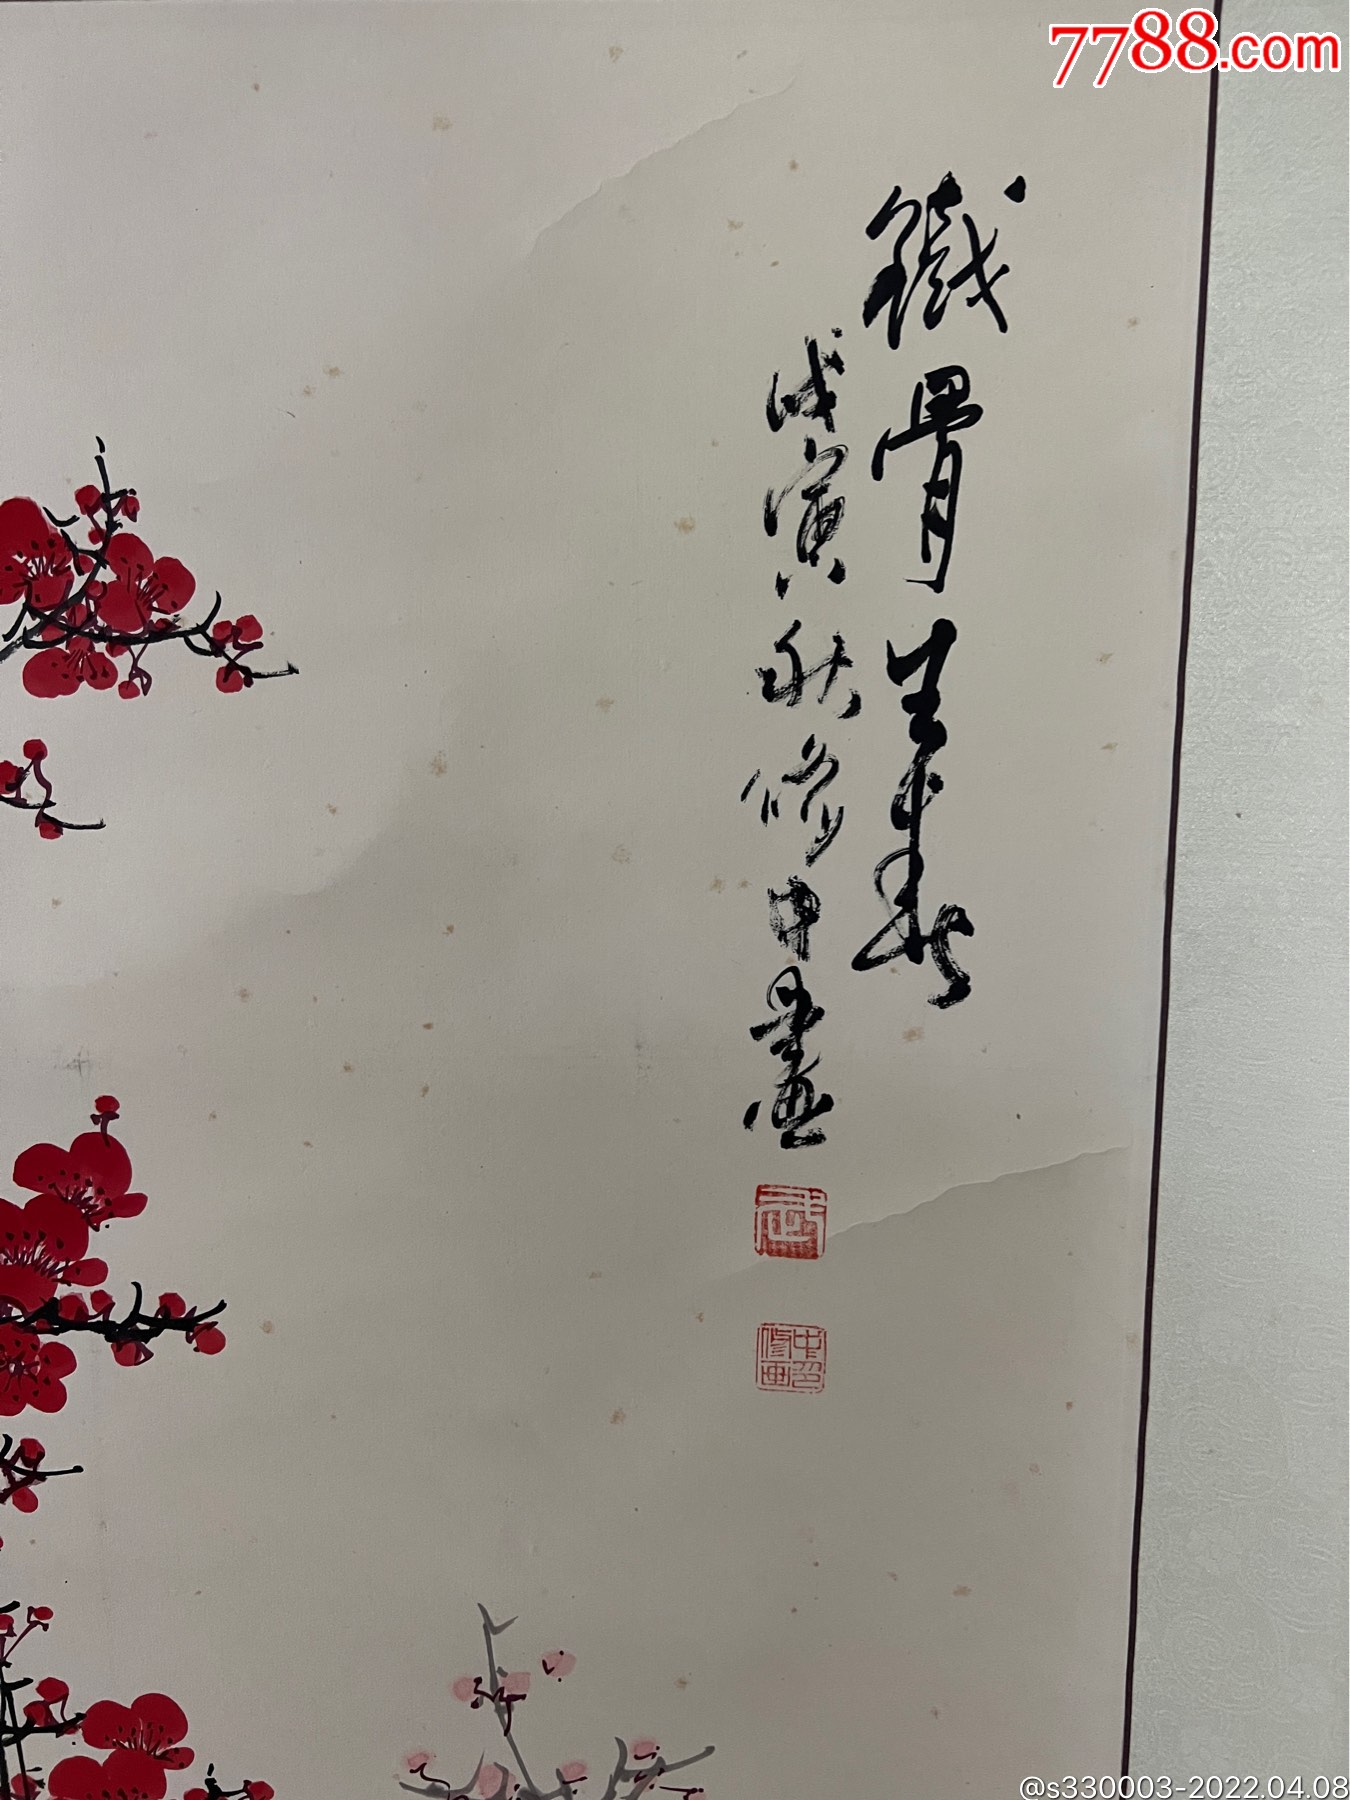 7788.com
鐵骨生春
戊寅秋修中畫
武
中印
修画
@s330003-2022.04.08